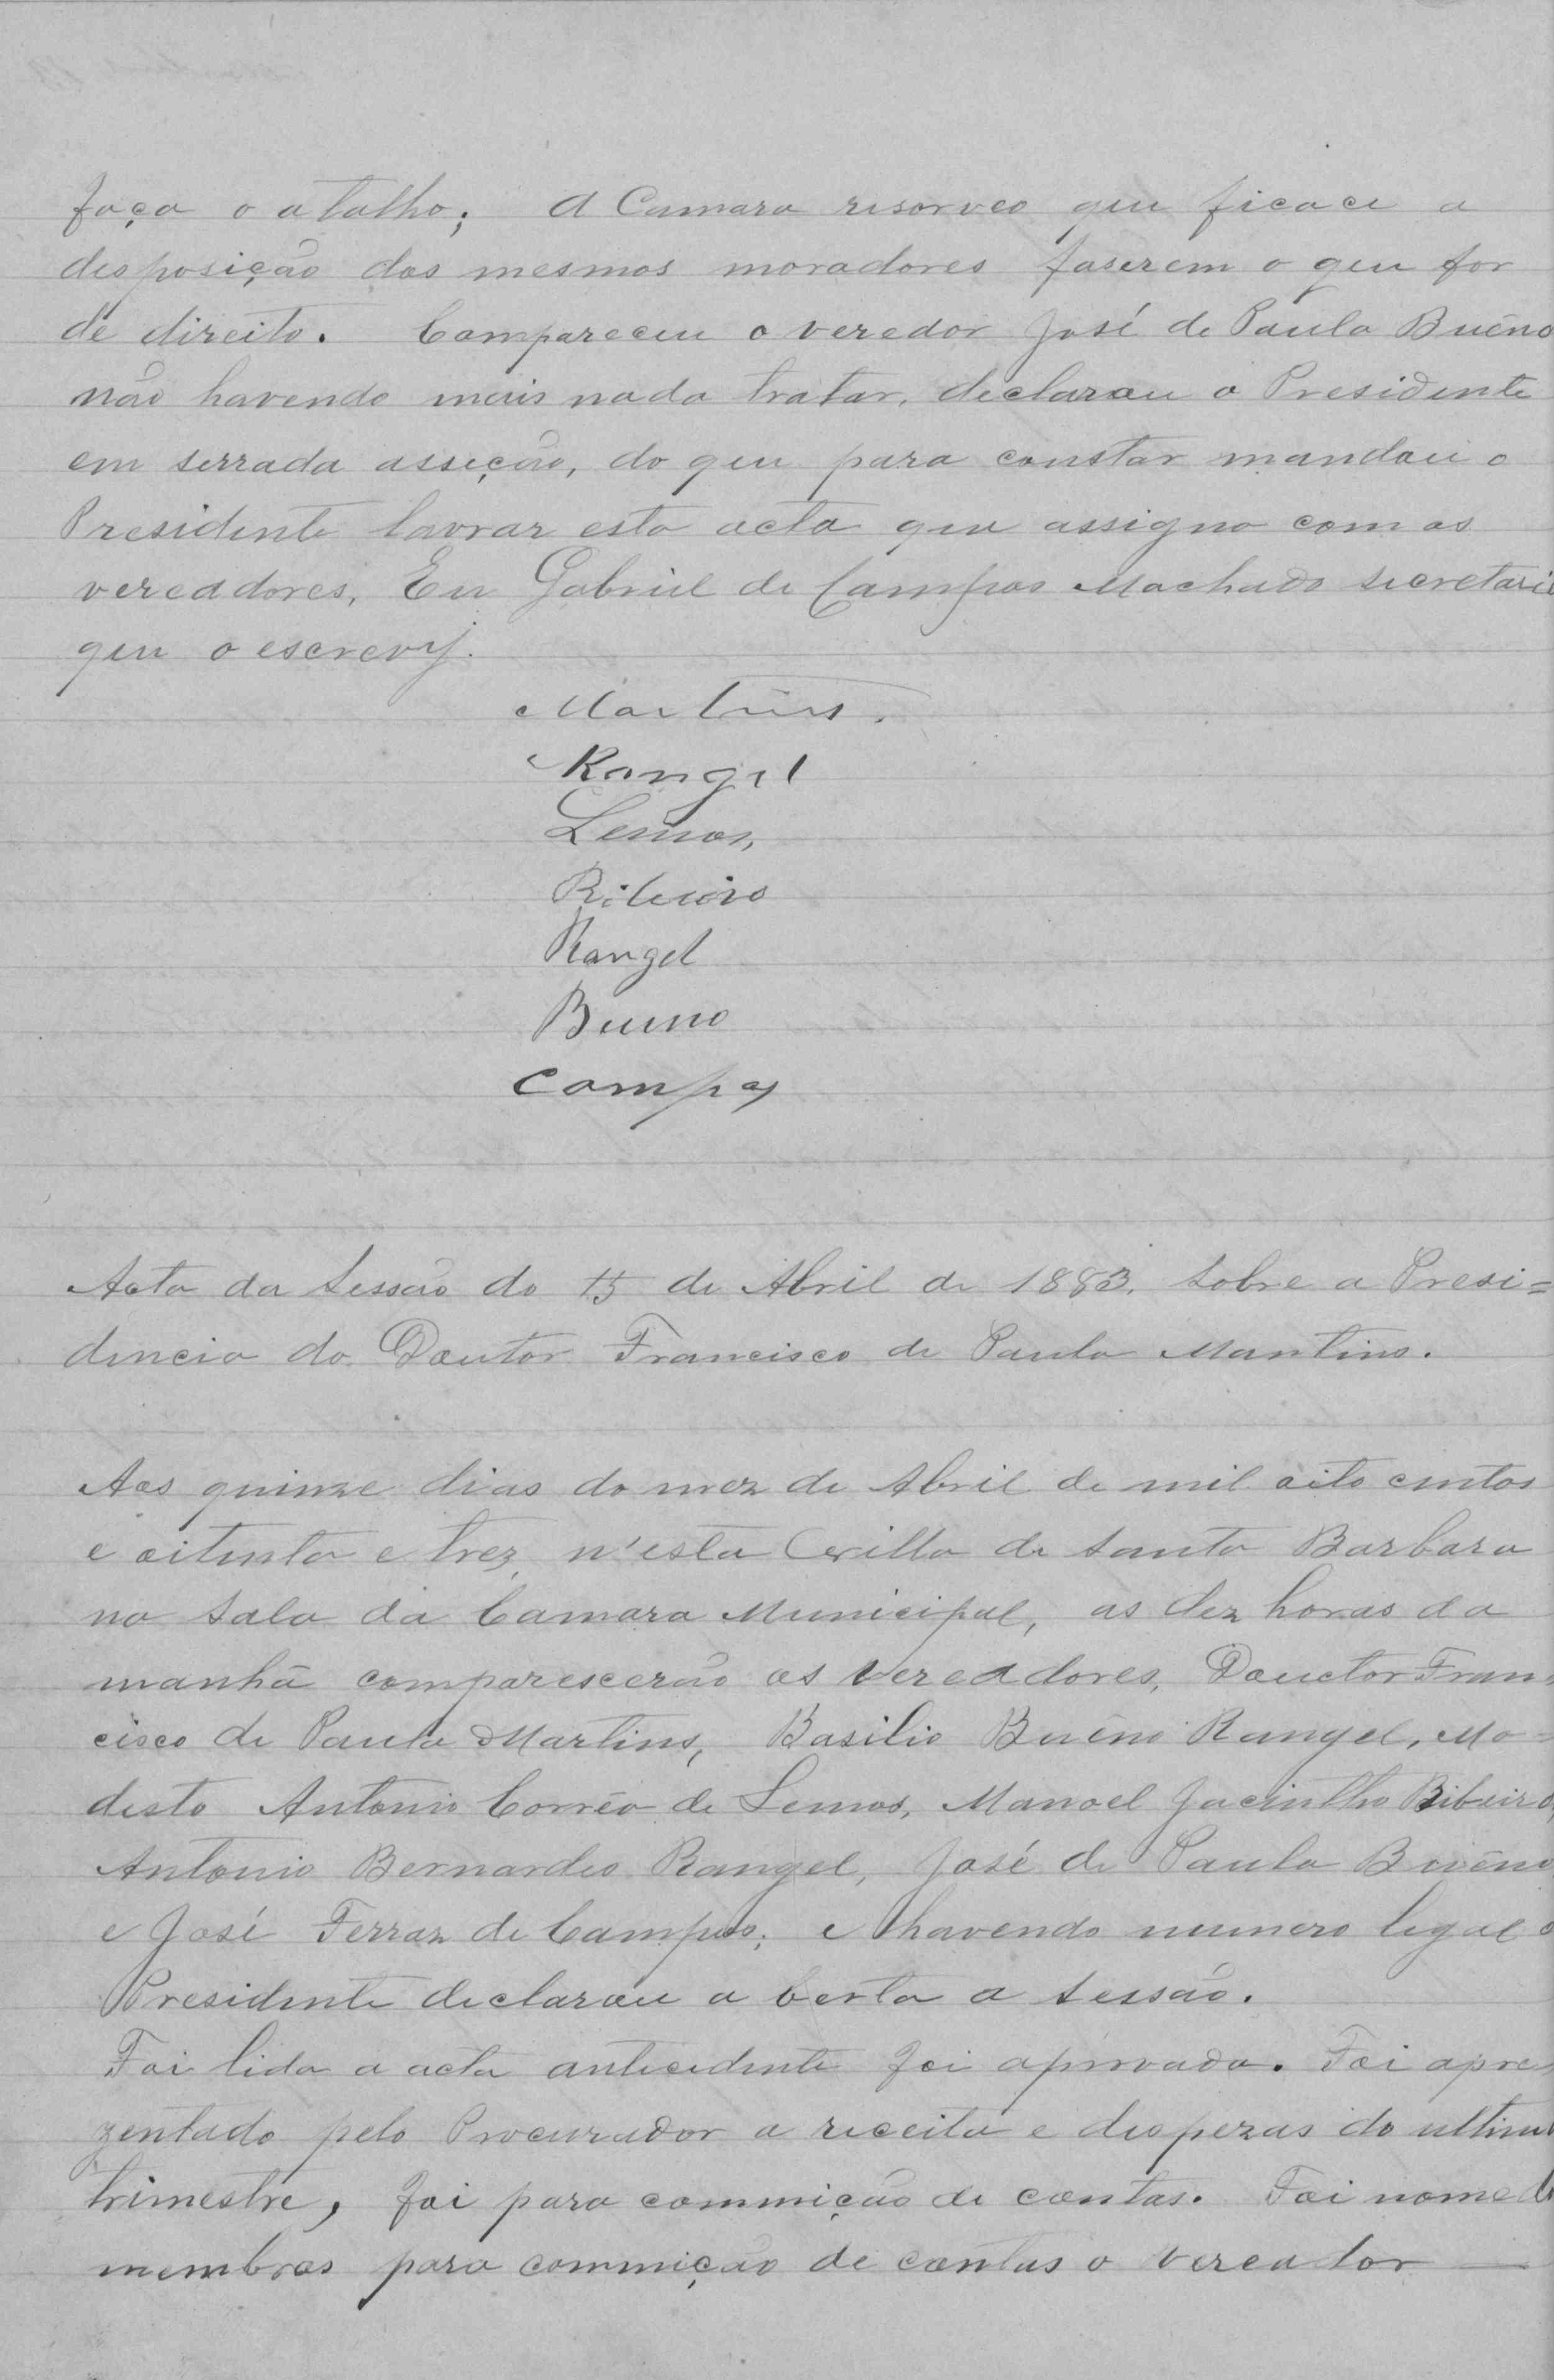 faça o atalho; A Camara resorveo que ficace a
desposição dos mesmos moradores faserem o que for
de direito. Compareceu o veredor José de Paula Buêno
não havendo mais nada tratar, declarou o Presidente
em serrada asseção, do que para constar mandou o
Presidente lavrar esta acta que assigno com os
vereadores, Eu Gabriel de Campos Machado secretario
que o escrevy.
Martins.
Rangel
Lemos,
Ribeiro
Rangel
Bueno
Campos
Acta da Sessão do 15 de Abril de 1883. Sobre a Presi=
dencia do Doutor Francisco de Paula Martins.
Aos quinze dias do mez de Abril de mil oito centos
e oitenta e trez, n'esta Villa de Santa Barbara
na Sala da Camara Municipal, as dez horas da
manhã comparescerão os Vereadores, Douctor Fran=
cisco de Paula Martins, Basilio Buêno Rangel, Mo=
desto Antonio Corrêa de Lemos, Manoel Jacintho Ribeiro,
Antonio Bernardes Rangel, José de Paula Buêno
e José Ferraz de Campos; e havendo numero legal o
Presidente declarou a berta a Sessão.
Foi lida a acta antecedente foi aprovada. Foi apre=
zentado pelo Procurador a receita e despezas do ultimo
trimestre, foi para commição de contas. Foi nomed
membros para commição de contas o vereador —